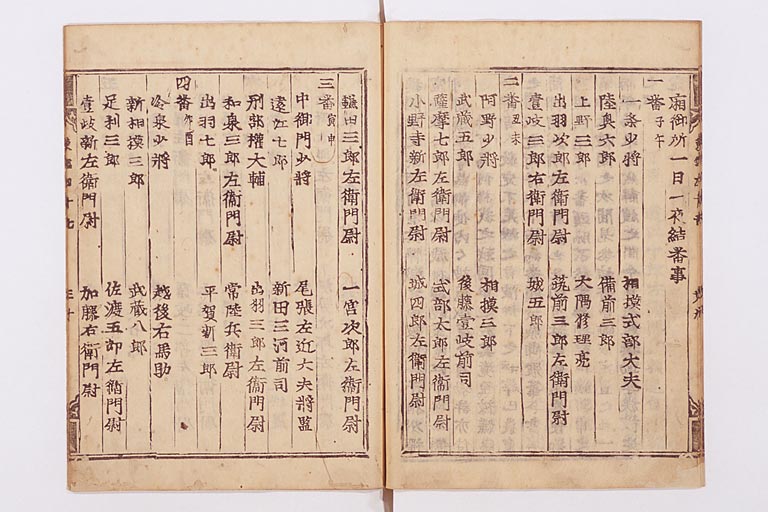 廂御所一日一夜結番事
一番 子午
一条少将 相摸式部大夫
陸奥六郎 備前三郎
上野三郎 大隅修理亮
出羽次郎左衛門尉 筑前三郎左衛門尉
壹岐三郎右衛門尉 城五郎
二番 丑未
阿野少將 相摸三郎
武蔵五郎 後藤壹岐前司
薩摩七郎左衛門尉 式部太郎左衛門尉
小野寺新左衛門尉 城四郎左衛門尉
鎌田三郎左衛門尉 一宮次郎左衛門尉
三番 寅申
中御門少將 尾張左近大夫將監
遠江七郎 新田三河前司
刑部權大輔 出羽三郎左衛門尉
和泉三郎左衛門尉 常陸兵衛尉
出羽七郎 平賀新三郎
四番 卯酉
冷泉少將 越後右馬助
新相摸三郎 武蔵八郎
足利三郎 佐渡五郎左衛門尉
壹岐新左衛門尉 加藤右衛門尉